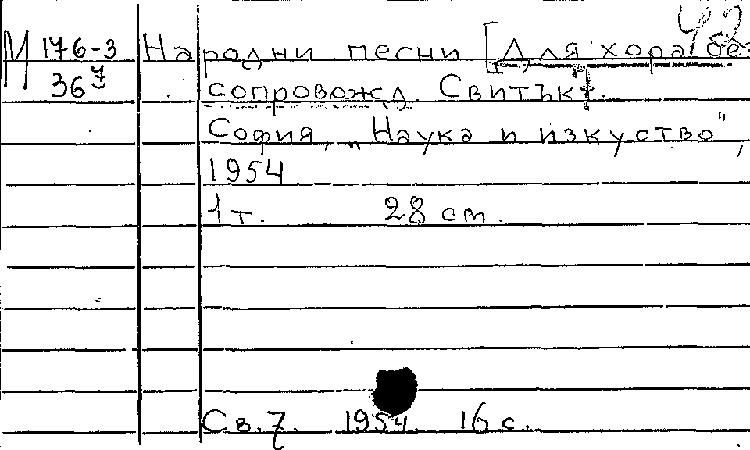 42
М 176-3 Народни песни [Для хора без
36 7 сопровожд. Свитък 7.
София, „Наука и изкуство",
1954
1 т. 28 cm.
Св. 7 1954 16 с.